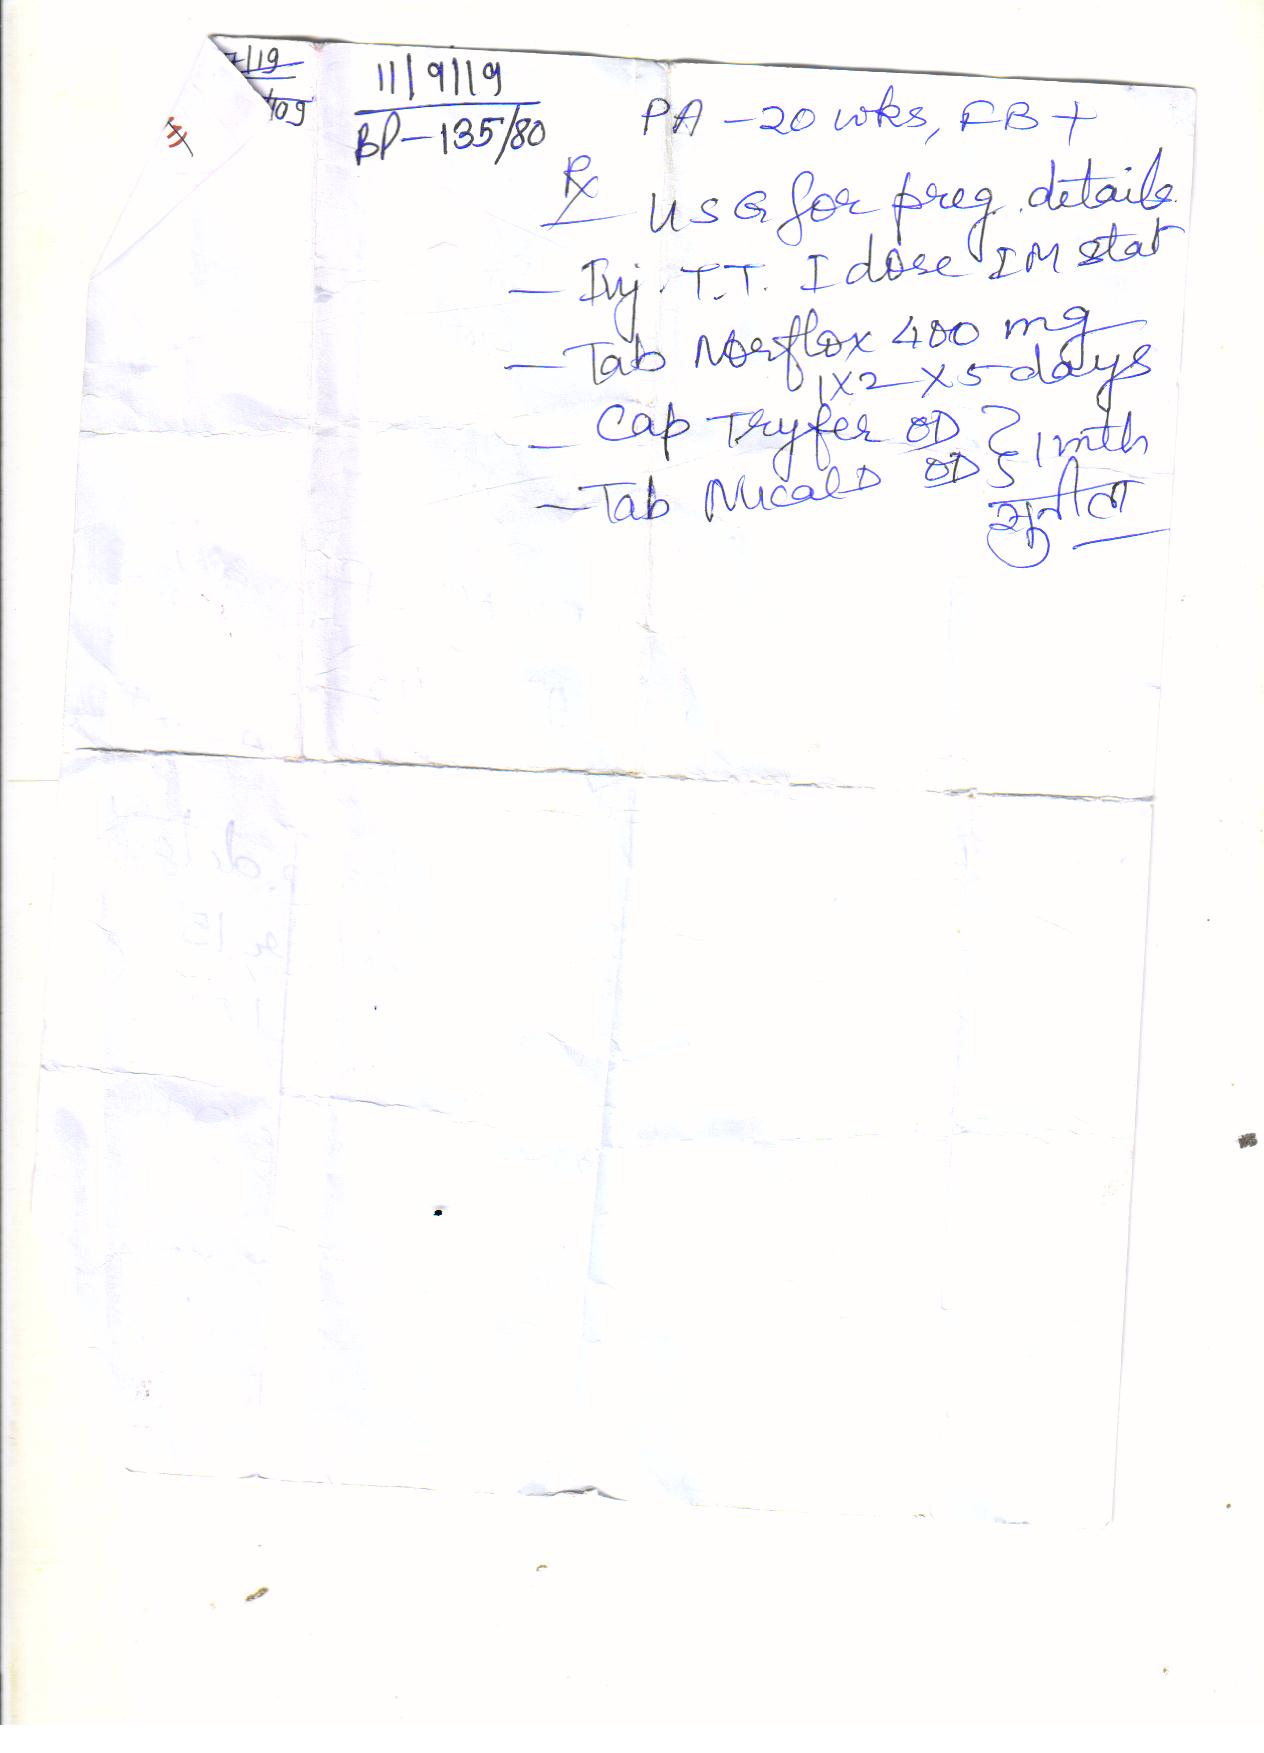 7/19
11/9/19
109
BP-135/80
PA - 20 wks, FB +
Rx
USG for preg. details
- Inj. T.T. I dose IM stat
- Tab Norflox 400 mg
1x2 x 5 days
- Cap Tryfer OD } 1 mth
- Tab Nucal D OD
सुनीता